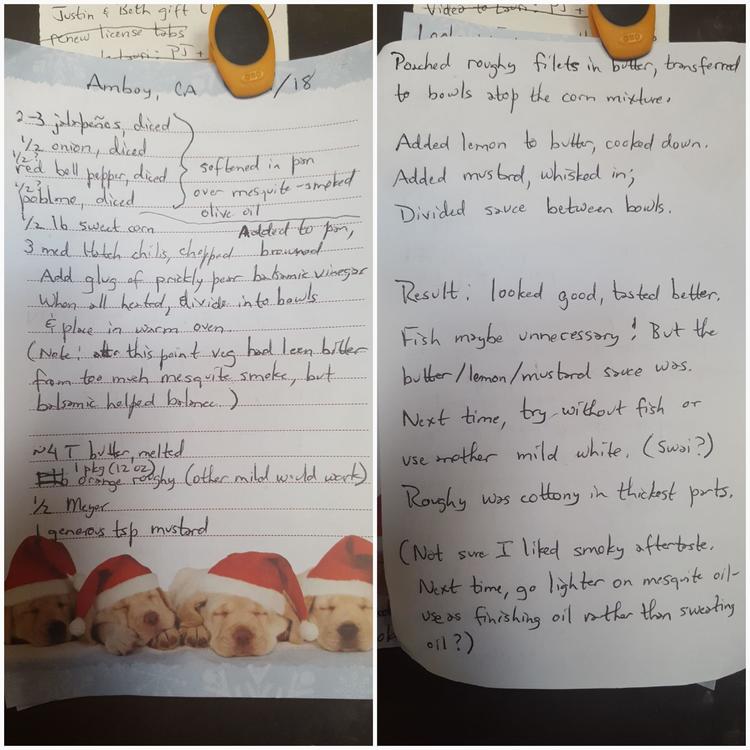 Justin & Beth gift (
renew license tabs
PJ +
OXO
Amboy, CA /18
2-3 jalapeños, diced
1/2 onion, diced
1/2? red bell pepper, diced
1/2? poblano, diced
softened in pan
over mesquite-smoked
olive oil
1/2 lb sweet corn Added to pan,
3 med Hatch chils, chopped browned
Add glug of prickly pear balsamic vinegar
When all heated, divide into bowls
& place in warm oven.
(Note: at this point veg had been bitter
from too much mesquite smoke, but
balsamic helped balance.)
~4 T butter, melted
1 pkg (12 oz)
orange roughy (other mild would work)
1/2 Meyer
1 generous tsp mustard
Video to
PJ +
OXO
Poached roughy filets in butter, transferred
to bowls atop the corn mixture.
Added lemon to butter, cooked down.
Added mustard, whisked in;
Divided sauce between bowls.
Result: looked good, tasted better.
Fish maybe unnecessary! But the
butter/lemon/mustard sauce was.
Next time, try without fish or
use another mild white. (Swai?)
Roughy was cottony in thickest parts.
(Not sure I liked smoky aftertaste.
Next time, go lighter on mesquite oil-
use as finishing oil rather than sweating
oil?)